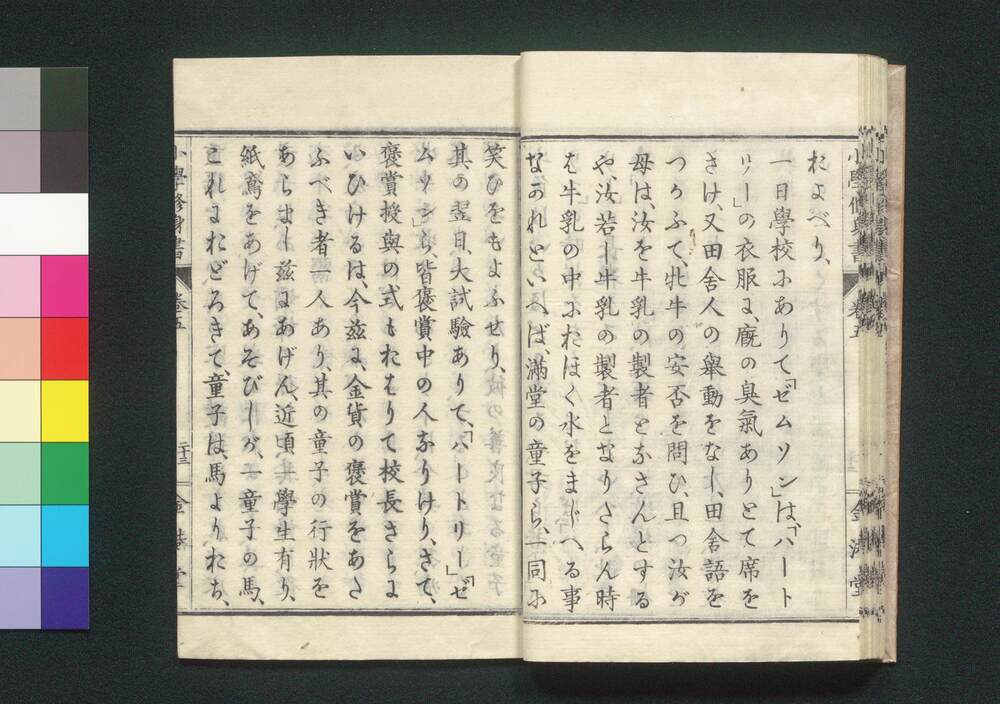 およべり、
一日學校にありて「ゼムソン」は、「ハート
リー」の衣服に、廐の臭氣ありとて席を
さけ、又田舍人の擧動をなし、田舍語を
つかふて、牝牛の安否を問ひ、且つ汝が
母は、汝を牛乳の製者となさんとする
や、汝若し牛乳の製者となりたらん時
は牛乳の中におほく水をまじへる事
なかれといへば、滿堂の童子ら、一同に
小學修身書
卷五
金港堂
笑ひをもよふせり、
其の翌日、大試驗ありて、「ハートリー」「ゼ
ムソン」ら、皆褒賞中の人なりけり、さて、
褒賞授與の式もおはりて校長さらに
いひけるは、今茲に、金貨の褒賞をあた
ふべき者一人あり、其の童子の行狀を
あらまし茲にあげん、近頃
學生有り、
紙鳶をあげて、あそびしが、一童子の馬、
これにおどろきて、童子は、馬よりおち、
小學修身書
卷五
二十三
金港堂